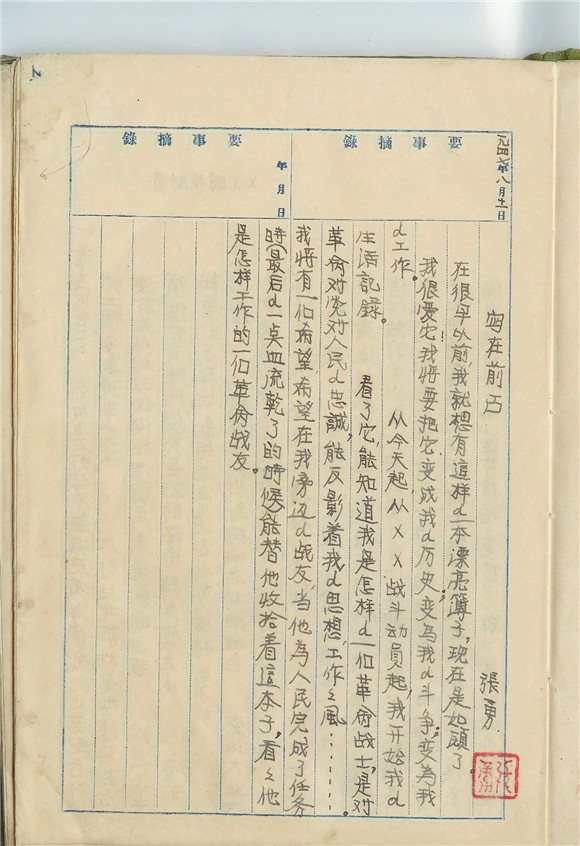 要事摘錄
一九四七年八月十一日
写在前面
張勇
張勇
在很早以前,我就想有這樣d一本漂亮簿子,現在是如願了.
我很愛它!我將要把它变成我d历史,变為我d斗争;变為我
d工作。
从今天起,从××战斗动員起,我开始我d
生活記錄。
看了它,能知道我是怎样d一個革命战士,是对
革命对党对人民d忠誠,能反影着我d思想,工作々風………。
我將有一個希望希望在我旁边d战友,当他為人民完成了任务
時(最后d一点血流乾了的時候能替他收拾着這本子,看々他
是怎樣工作的一個革命战友。
要事摘錄
年月日